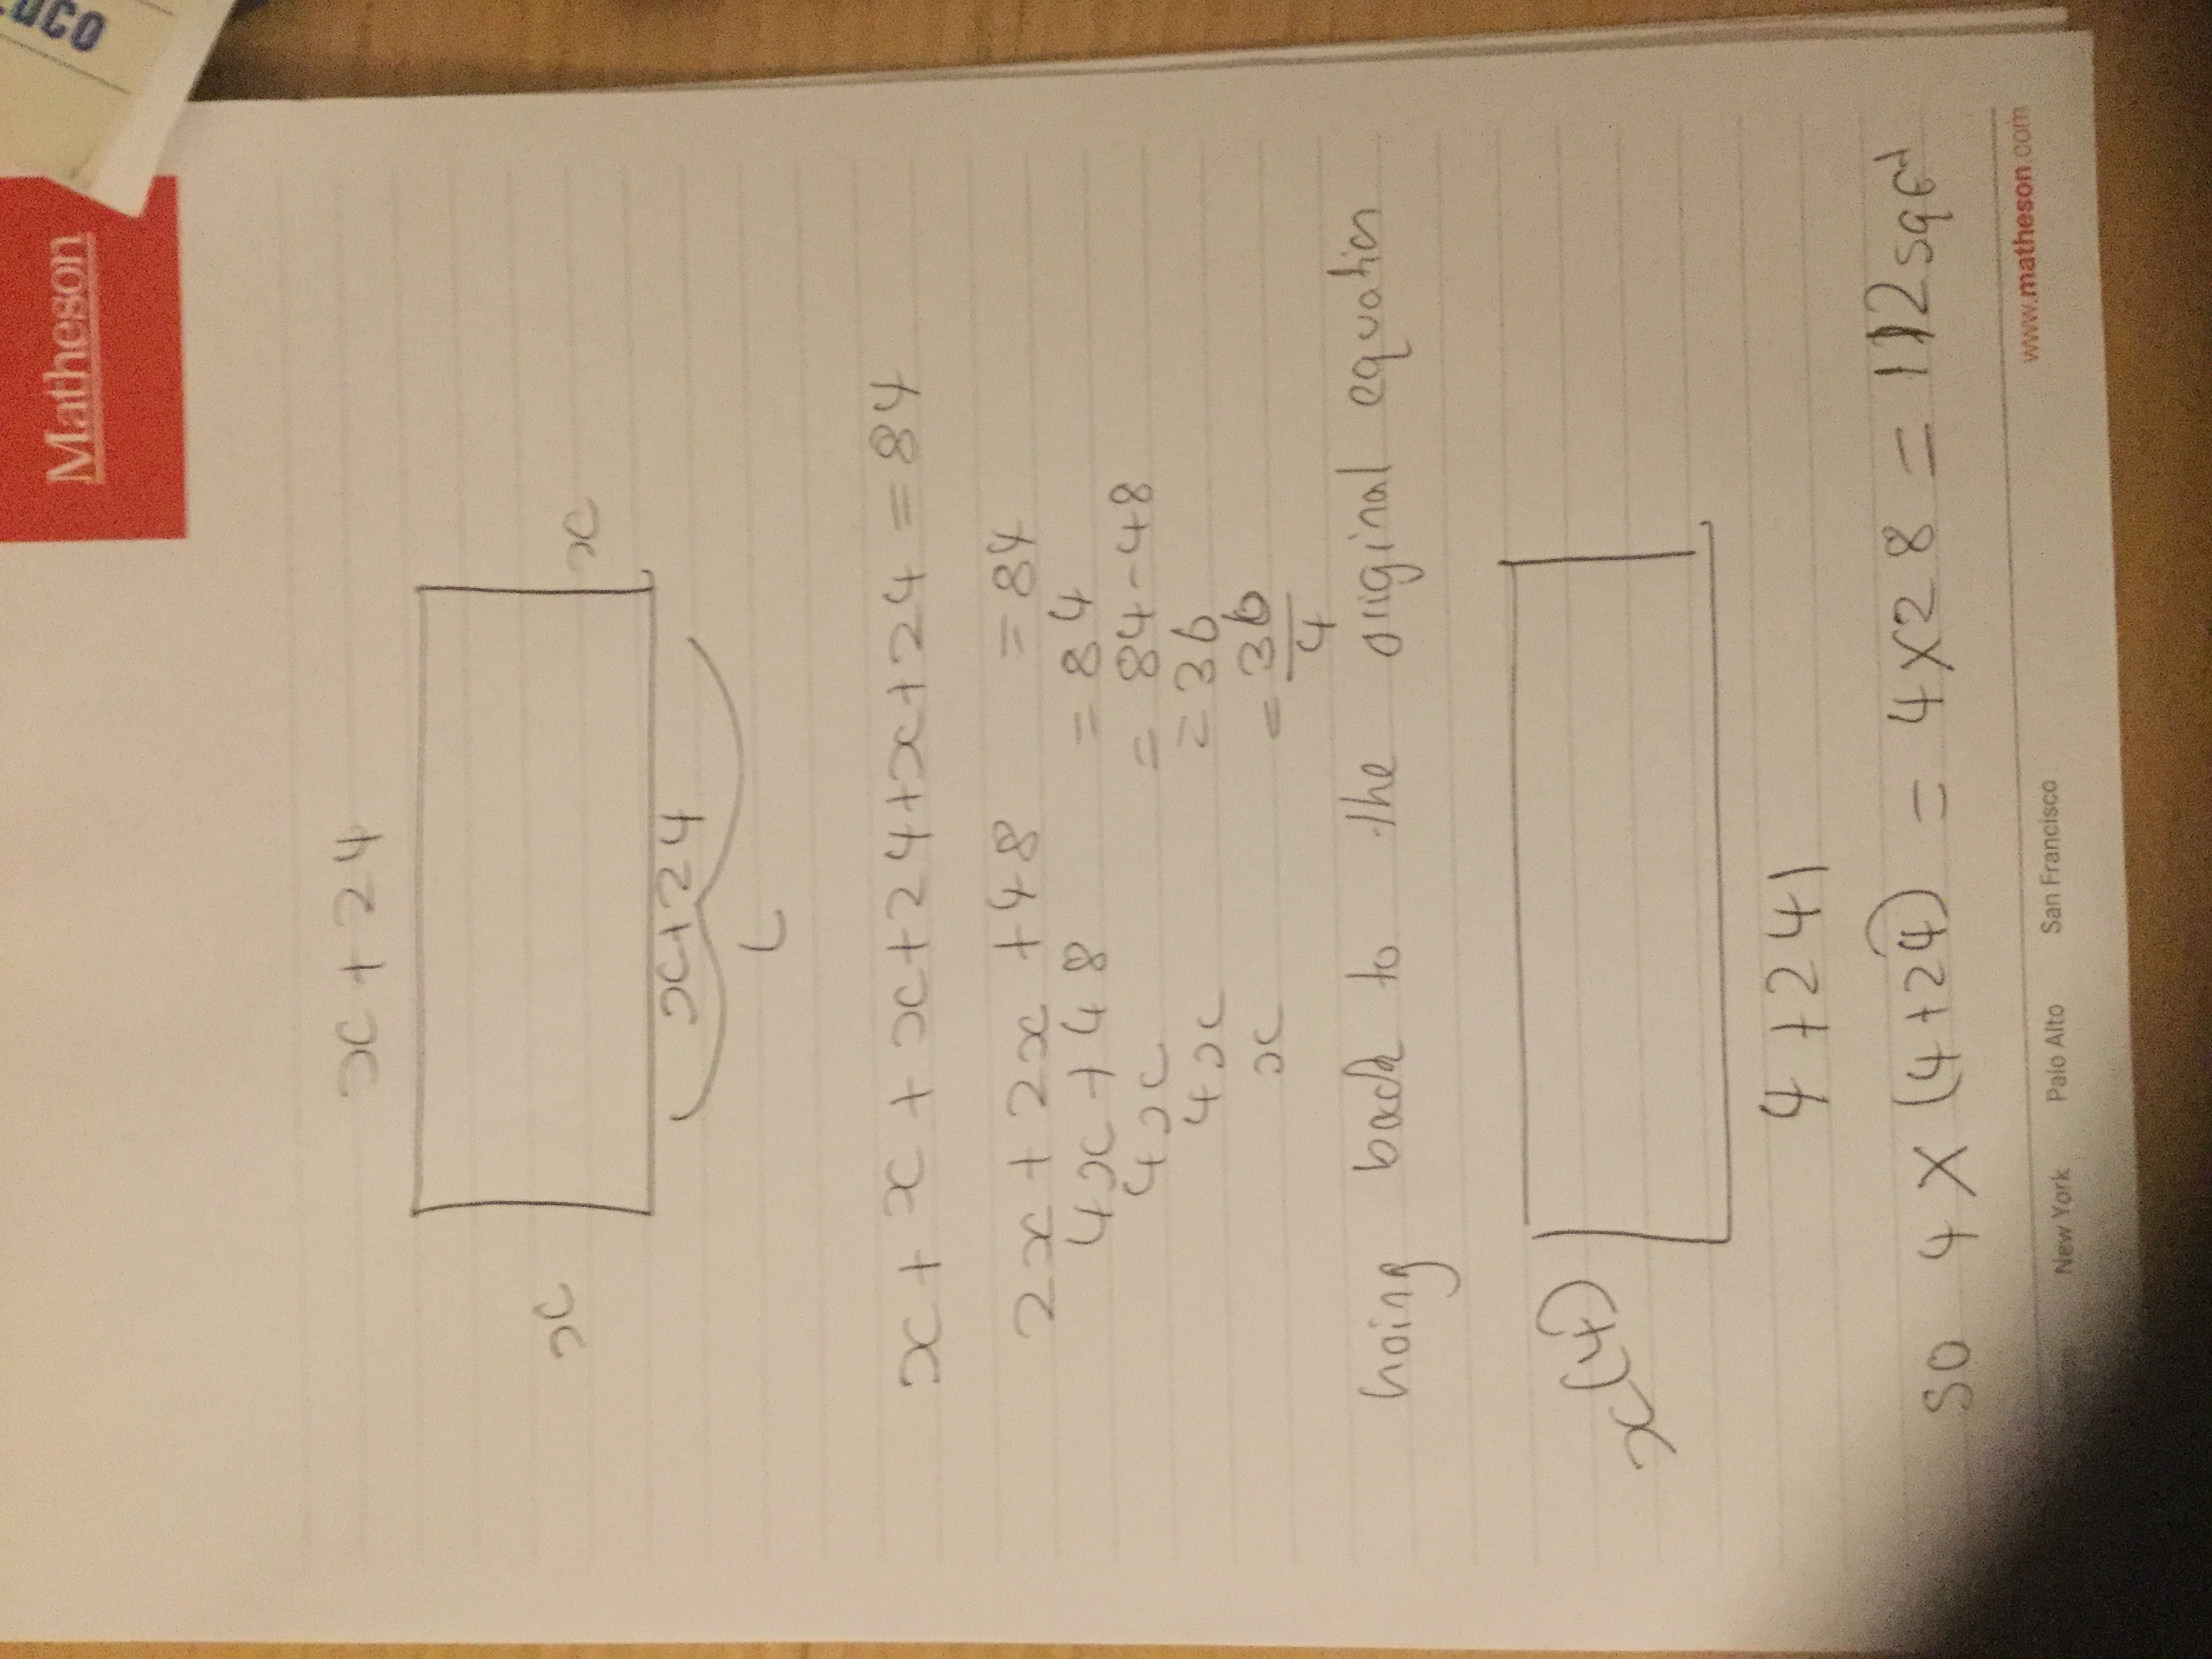 Matheson
x + 24
x
x
x+24
L
x + x + x + 24 + x + 24 = 84
2x + 2x + 48 = 84
4x + 48 = 84
4x = 84 - 48
4x = 36
x = 36
4
back to the original equation
x(4)
4 + 24
so 4 X (4+24) = 4X28 = 112 sq
New York Palo Alto San Francisco
www.matheson.com